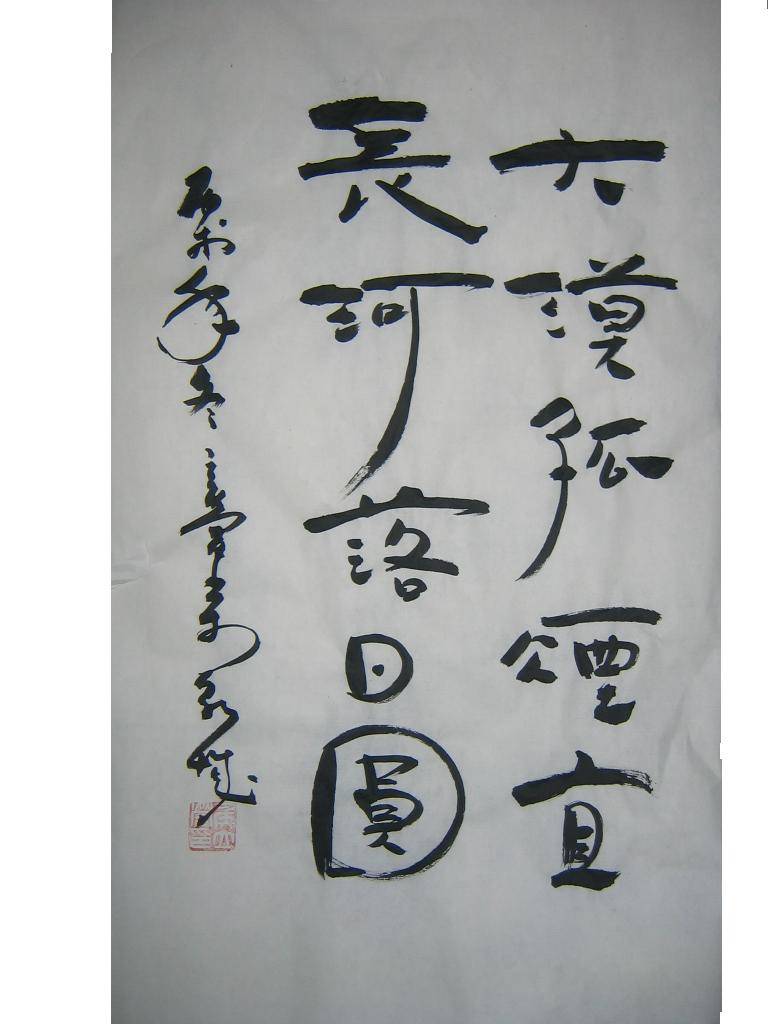 大漠孤煙直
長河落日圓
丙戌年冬